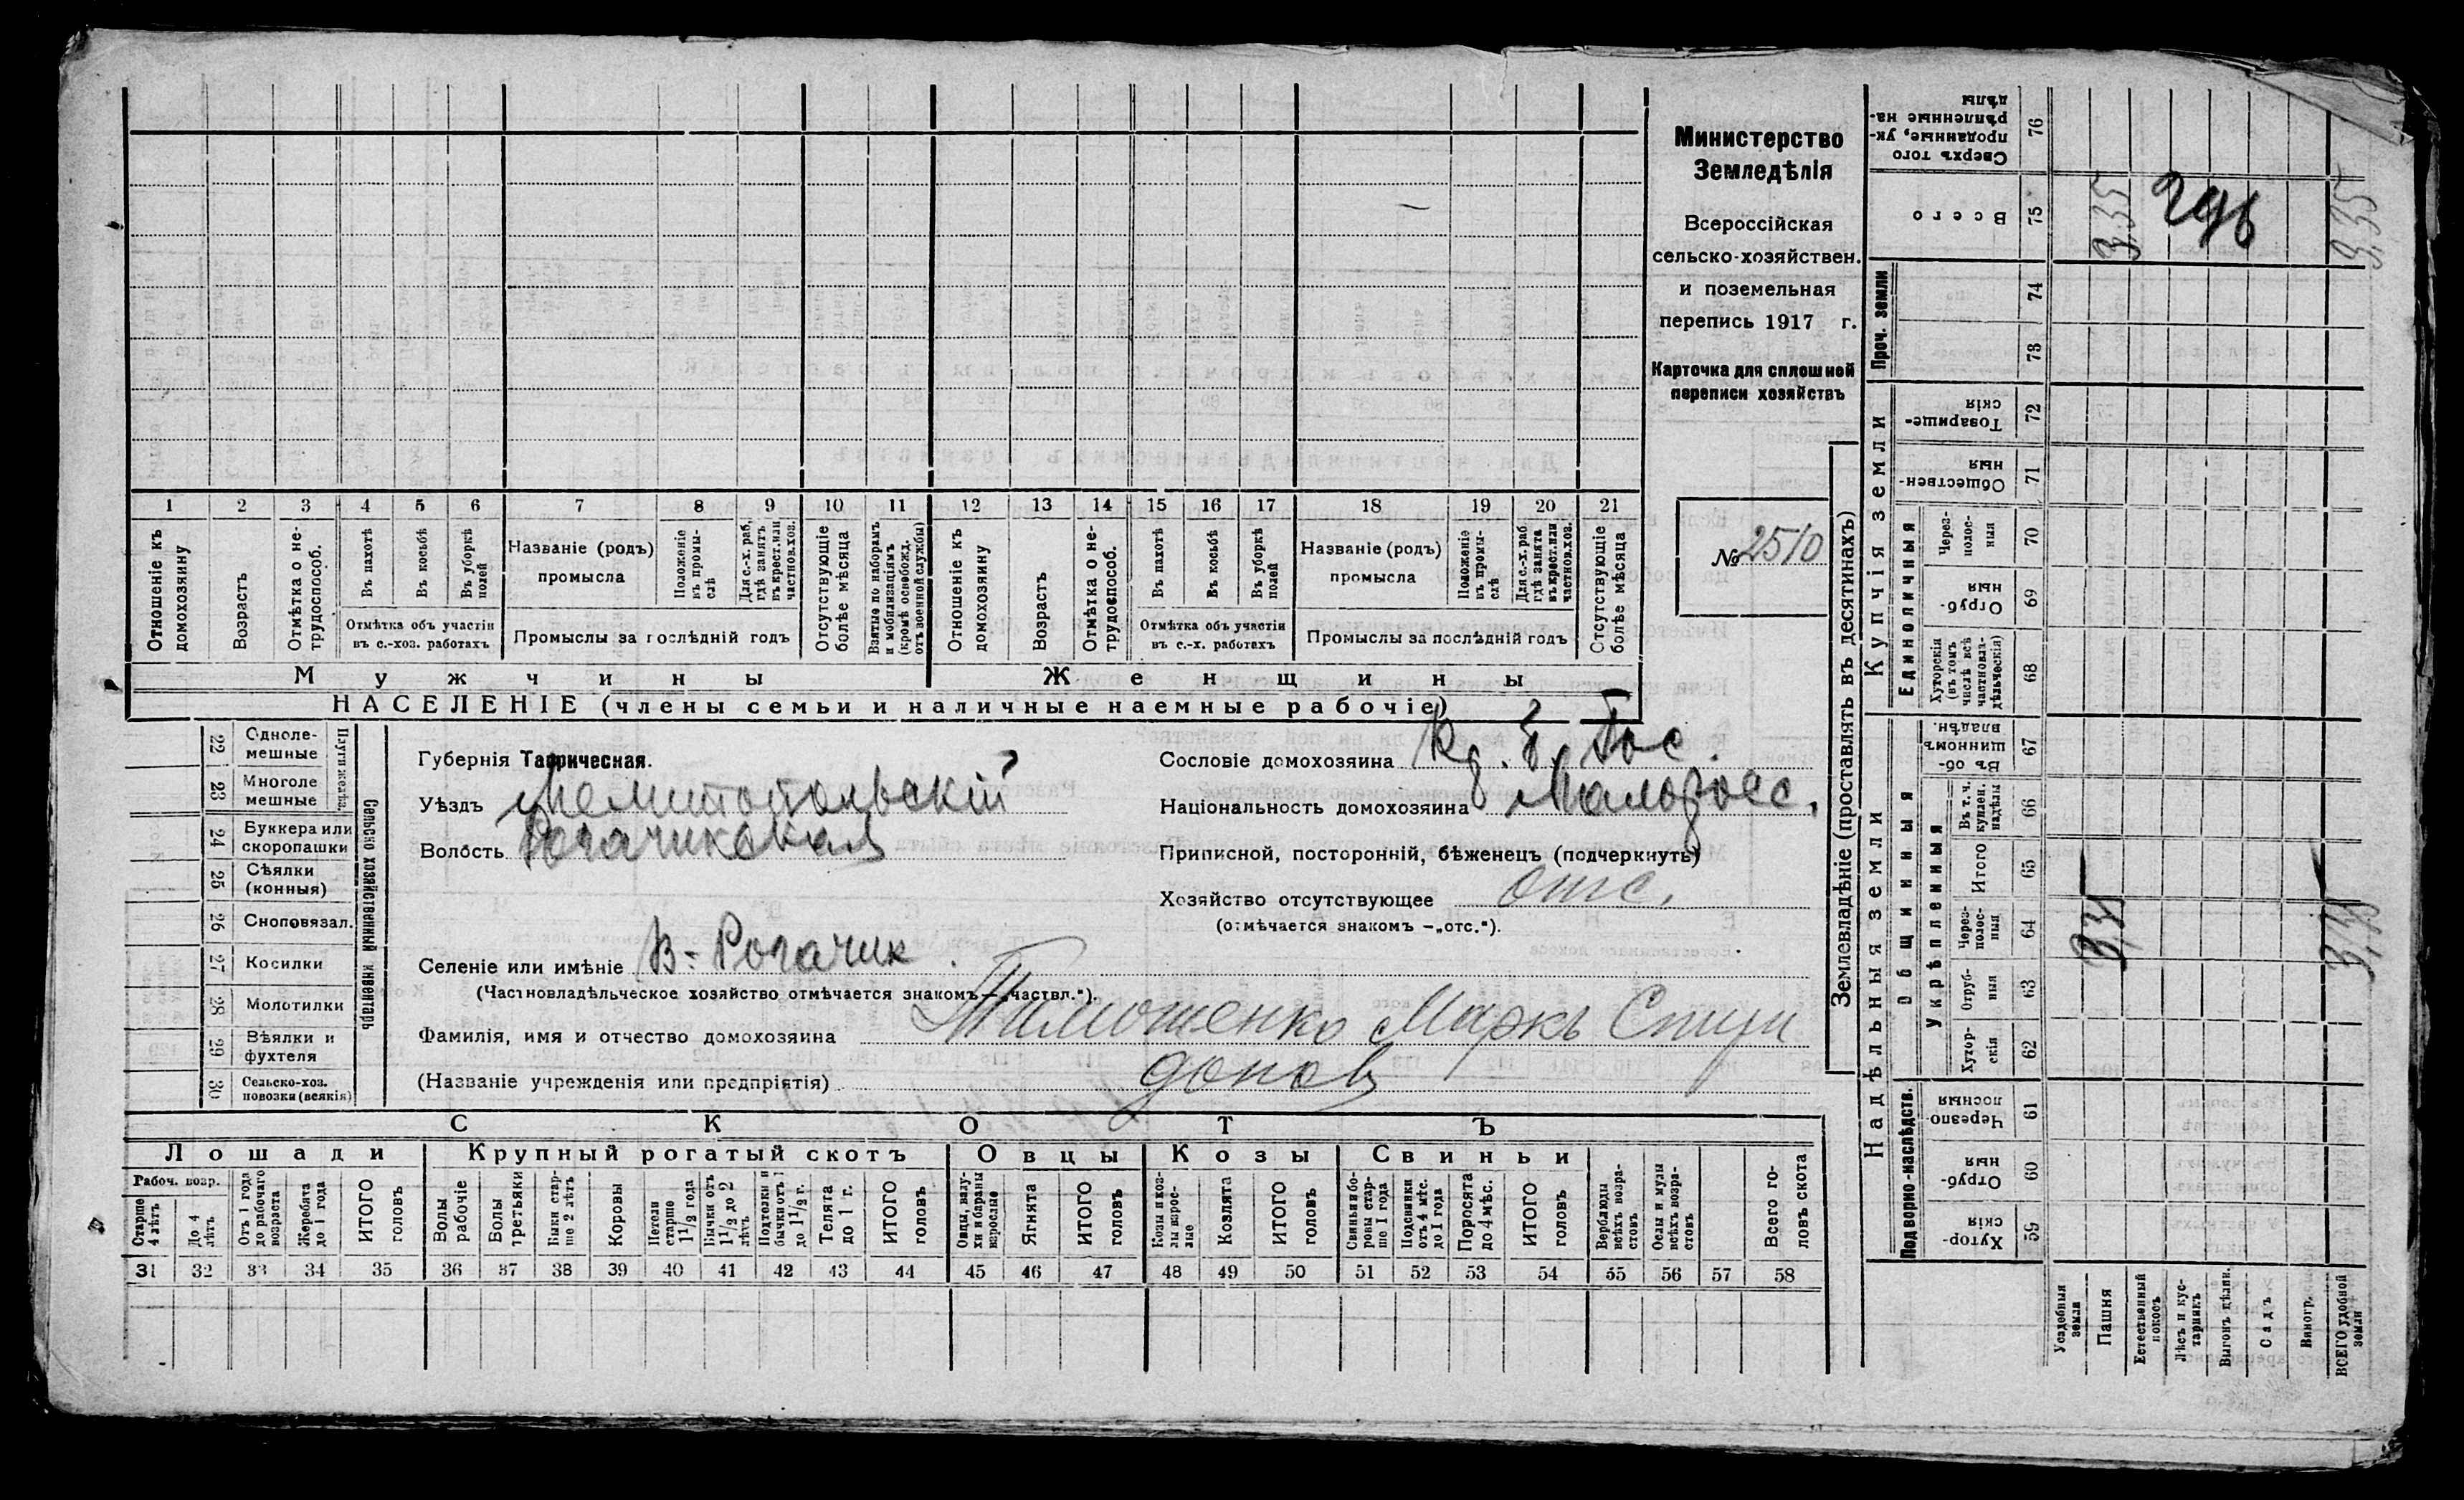 1 2 3 4 5 6 7 8 9 10 11 12 13 14 15 16 17 18 19 20 21
Отношеніе къ домохозяину
Возрастъ
Отмѣтка о не-трудоспособ.
Въ пахотѣ
Въ косьбѣ
Въ уборкѣ полей
Отмѣтка объ участіи
въ с.-хоз. работахъ
Названіе (родъ)
промысла
Положеніе въ промы-слѣ
Для с.-х. раб, гдѣ занятъ въ крест. или частнов. хоз.
Промыслы за послѣдній годъ
Отсутствующіе болѣе мѣсяца
Взятые по наборамъ и мобилизаціямъ (кромѣ освобожд. отъ военной службы)
Отношеніе къ домохозяину
Возрастъ
Отмѣтка о не-трудоспособ.
Въ пахотѣ
Въ косьбѣ
Въ уборкѣ полей
Отмѣтка объ участіи
въ с.-х. работахъ
Названіе (родъ)
промысла
Положеніе въ промы-слѣ
Для с.-х. раб. гдѣ занята въ крест. или частнов. хоз.
Промыслы за послѣдній годъ
Отсутствующіе болѣе мѣсяца
Мужчины Женщины
НАСЕЛЕНІЕ (члены семьи и наличные наемные рабочіе)
Министерство
Земледѣлія
Всероссійская
сельско-хозяйствен.
и поземельная
перепись 1917 г.
Карточка для сплошной
переписи хозяйствъ
№ 2510
22 Одноле-мешные
23 Многоле мешные
24 Буккера или скоропашки
25 Сѣялки (конныя)
26 Сноповязал.
27 Косилки
28 Молотилки
29 Вѣялки и фухтеля
30 Сельско-хоз. повозки (всякія)
Сельско хозяйственный инвентарь
Губернія Таврическая.
Уѣздъ Мелитопольскій
Волость Рогачикская
Селеніе или имѣніе В-Рогачик.
(Частновладѣльческое хозяйство отмѣчается знакомъ—„частвл.").
Фамилія, имя и отчество домохозяина Тимошенко Маркъ Спири
(Названіе учрежденія или предпріятія) донов
Сословіе домохозяина
Національность домохозяина Малоросс.
Приписной, посторонній, бѣженецъ (подчеркнуть)
Хозяйство отсутствующее отс.
(отмѣчается знакомъ —„отс.").
СКОТЪ
Лошади Крупный рогатый скотъ Овцы Козы Свиньи
Рабоч. возр.
Старше 4 лѣтъ
До 4 лѣтъ
Отъ 1 года до рабочаго возраста
Жеребята до 1 года
ИТОГО головъ
Волы рабочіе
Волы третьяки
Быки стар-ше 2 лѣтъ
Коровы
Нетели старше 1 1/2 года
Бычки отъ 1 1/2 до 2 лѣтъ
Подтелки и бычки отъ 1 до 1 1/2 г.
Телята до 1 г.
ИТОГО головъ
Овцы, валу-хи и бараны взрослые
Ягнята
ИТОГО головъ
Козы и коз-лы взрос-лые
Козлята
ИТОГО головъ
Свиньи и бо-ровы стар-ше 1 года
Подсвинки отъ 4 мѣс. до 1 года
Поросята до 4 мѣс.
ИТОГО головъ
Верблюды всѣхъ возра-стовъ
Ослы и мулы всѣхъ возра-стовъ
Всего го-ловъ скота
31 32 33 34 35 36 37 38 39 40 41 42 43 44 45 46 47 48 49 50 51 52 53 54 55 56 57 58
Землевладѣніе (проставлять въ десятинахъ)
Надѣльныя земли Купчія земли Проч. земли
Подворно-наслѣдств.
Общинныя
Укрѣпленныя
Единоличныя
Хутор-скія 59
Отруб-ныя 60
Черезпо-лосныя 61
Хутор-скія 62
Отруб-ныя 63
Через-полос-ныя 64
Итого 65
Въ т. ч. куплен. надѣлы 66
Въ об-щинномъ владѣн. 67
Хуторскія (въ томъ числѣ всѣ частновла-дѣльческія) 68
Отруб-ныя 69
Через-полос-ныя 70
Обществен-ныя 71
Товарище-скія 72
73
74
Всего 75
Сверхъ того проданные, ук-рѣпленные на-дѣлы 76
Усадебныя земли
Пашня
Естественный покосъ
Лѣсъ и кус-тарникъ
Выгонъ цѣлин.
Садъ
Виногр.
ВСЕГО удобной земли
3,35
296
3,35